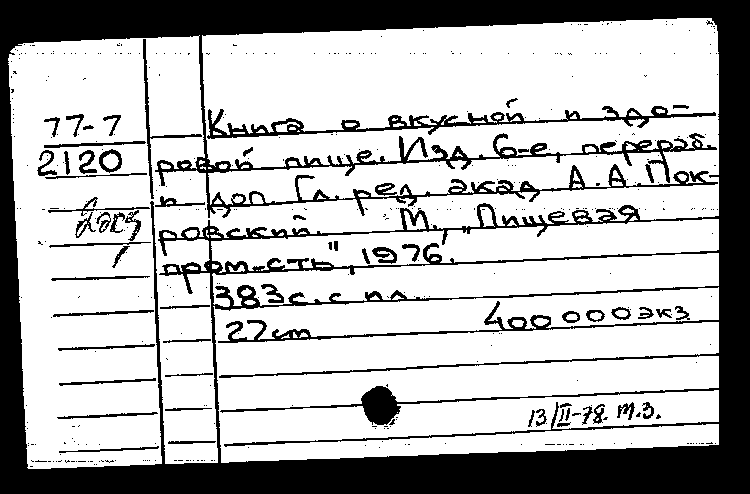 77-7
2120
Книга о вкусной и здо-
ровой пище. Изд. 6-е, перераб.
и доп. Гл. ред. акад А.А. Пок-
ровский. М., „Пищевая
пром-сть", 1976.
383с. с ил.
27см 400 000 экз
13/II-78. т.з.